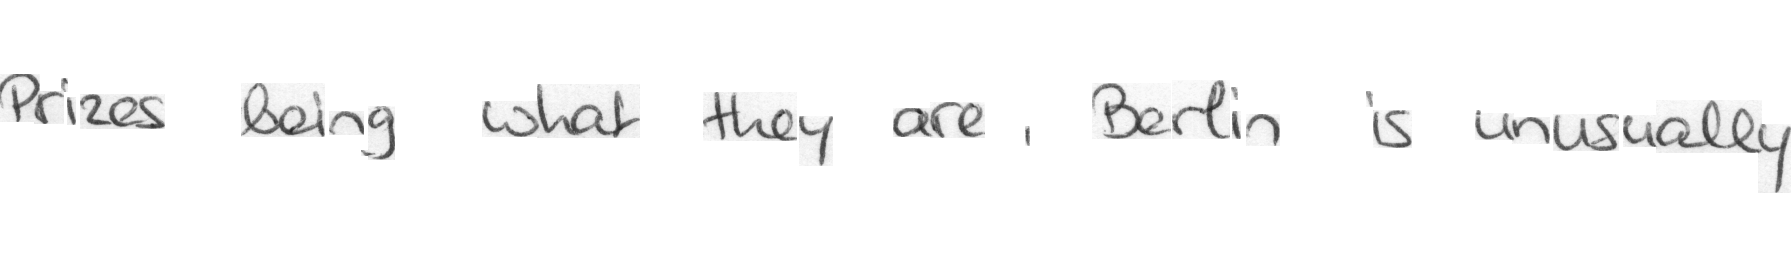 Prizes being what they are, Berlin is unusually